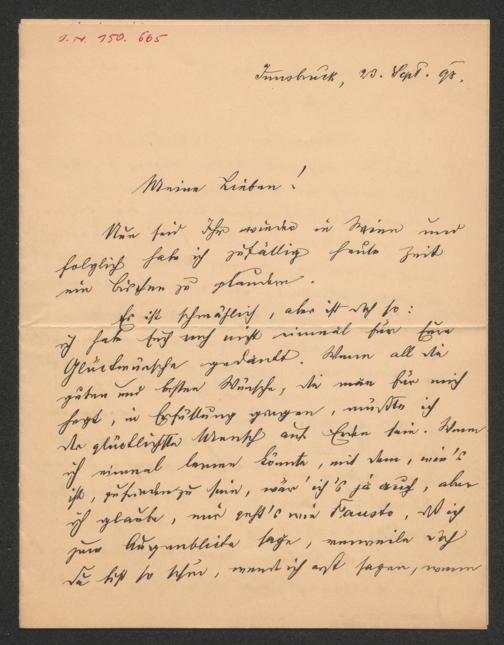 I.N. 150.605
Innsbruck, 23. Sept. 98.
Meine Lieben!
Nun seid Ihr wieder in Wien und
folglich habe ich zufällig heute Zeit
ein bischen zu plaudern.
Es ist schmählich, aber ist doch so:
ich habe Euch noch nicht einmal für Eure
Glückwünsche gedankt. Wenn all die
guten und besten Wünsche, die man für mich
hegt, in Erfüllung gingen, müßte ich
der glücklichste Mensch auf Erden sein. Wenn
ich einmal lernen könnte, mit dem, wie's
ist, zufrieden zu sein, wär' ich's ja auch, aber
ich glaube, mir geht's wie Fausto, daß ich
zum Augenblicke sage, verweile doch
Du bist so schön, werd ich erst sagen, wenn